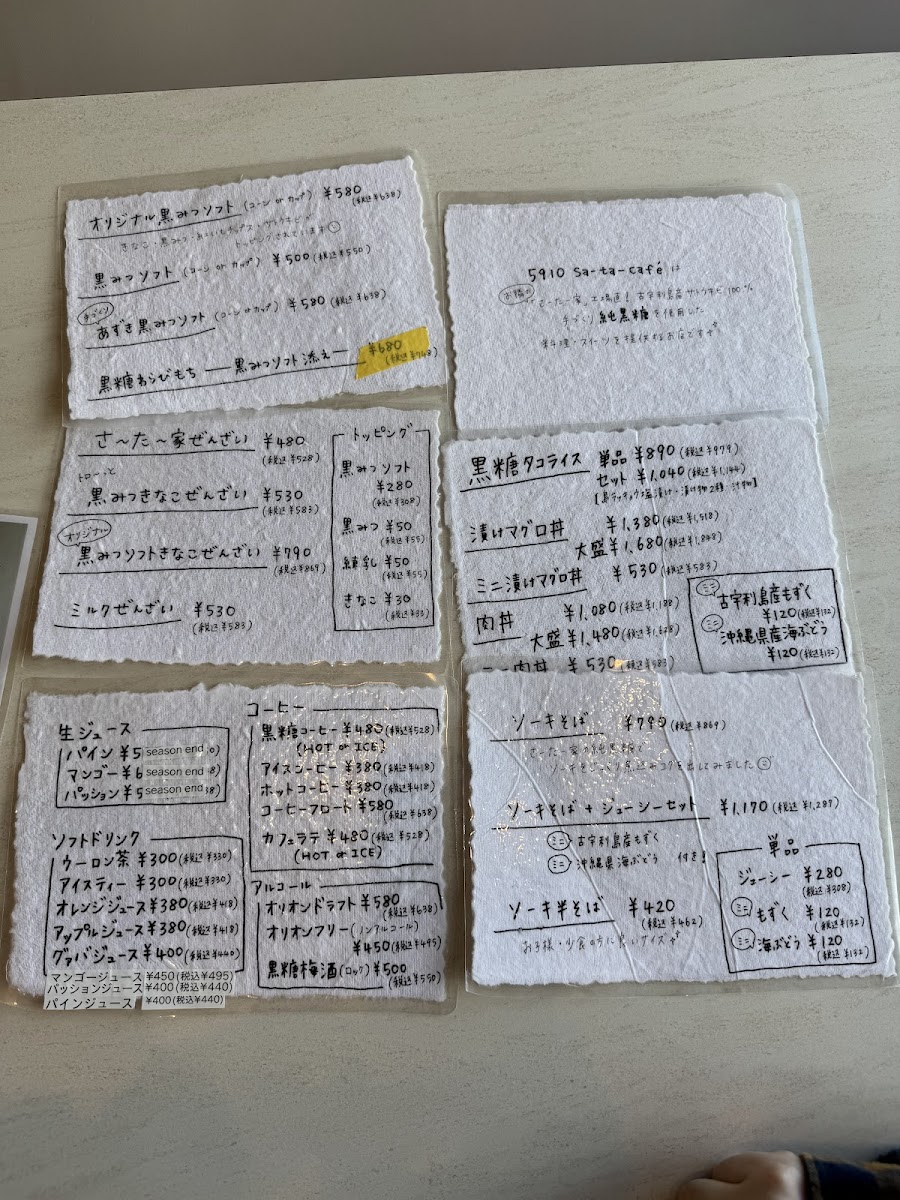 オリジナル黒みつソフト (コーン or カップ) ¥580 (税込¥638)
トッピングされています
黒みつソフト (コーン or カップ) ¥500 (税込¥550)
手づくり
あずき黒みつソフト (コーン or カップ) ¥580 (税込¥638)
黒糖わらびもち ー黒みつソフト添えー ¥680 (税込¥748)
さ〜た〜家ぜんざい ¥480 (税込¥528)
トローっと
黒みつきなこぜんざい ¥530 (税込¥583)
オリジナル
黒みつソフトきなこぜんざい ¥790 (税込¥869)
ミルクぜんざい ¥530 (税込¥583)
トッピング
黒みつソフト
¥280
(税込¥308)
黒みつ ¥50
(税込¥55)
練乳 ¥50
(税込¥55)
きなこ ¥30
(税込¥33)
生ジュース
パイン ¥5 season end 0)
マンゴー ¥6 season end 8)
パッション ¥5 season end 38)
ソフトドリンク
ウーロン茶 ¥300 (税込¥330)
アイスティー ¥300 (税込¥330)
オレンジジュース ¥380 (税込¥418)
アップルジュース ¥380 (税込¥418)
グァバジュース ¥400 (税込¥440)
マンゴージュース ¥450(税込¥495)
パッションジュース ¥400(税込¥440)
パインジュース ¥400(税込¥440)
コーヒー
黒糖コーヒー ¥480 (税込¥528)
(HOT or ICE)
アイスコーヒー ¥380 (税込¥418)
ホットコーヒー ¥380 (税込¥418)
コーヒーフロート ¥580
(税込¥638)
カフェラテ ¥480 (税込¥528)
(HOT or ICE)
アルコール
オリオンドラフト ¥580
(税込¥638)
オリオンフリー (ノンアルコール)
¥450 (税込¥495)
黒糖梅酒 (ロック) ¥500
(税込¥550)
5910 Sa-ta-café は
お隣の
さーたー家 工場直! 古宇利島産サトウキビ100%
手づくり 純黒糖を使用した
料理・スイーツを提供するお店です
黒糖タコライス 単品 ¥890 (税込¥979)
セット ¥1,040 (税込¥1,144)
漬けマグロ丼 ¥1,380 (税込¥1,518)
大盛 ¥1,680 (税込¥1,848)
ミニ漬けマグロ丼 ¥530 (税込¥583)
肉丼 ¥1,080 (税込¥1,188)
大盛 ¥1,480 (税込¥1,628)
ミニ肉丼 ¥530 (税込¥583)
ミニ
古宇利島産もずく
¥120 (税込¥132)
ミニ
沖縄県産海ぶどう
¥120 (税込¥132)
ソーキそば ¥790 (税込¥869)
さーたー家の純黒糖で
ソーキをじっくり煮込みコクを出してみました
ソーキそば + ジューシーセット ¥1,170 (税込¥1,287)
ミニ 古宇利島産もずく
ミニ 沖縄県海ぶどう 付き!
ソーキ半そば ¥420
(税込¥462)
お子様・少食の方に良いサイズ
単品
ジューシー ¥280
(税込¥308)
ミニ もずく ¥120
(税込¥132)
ミニ 海ぶどう ¥120
(税込¥132)